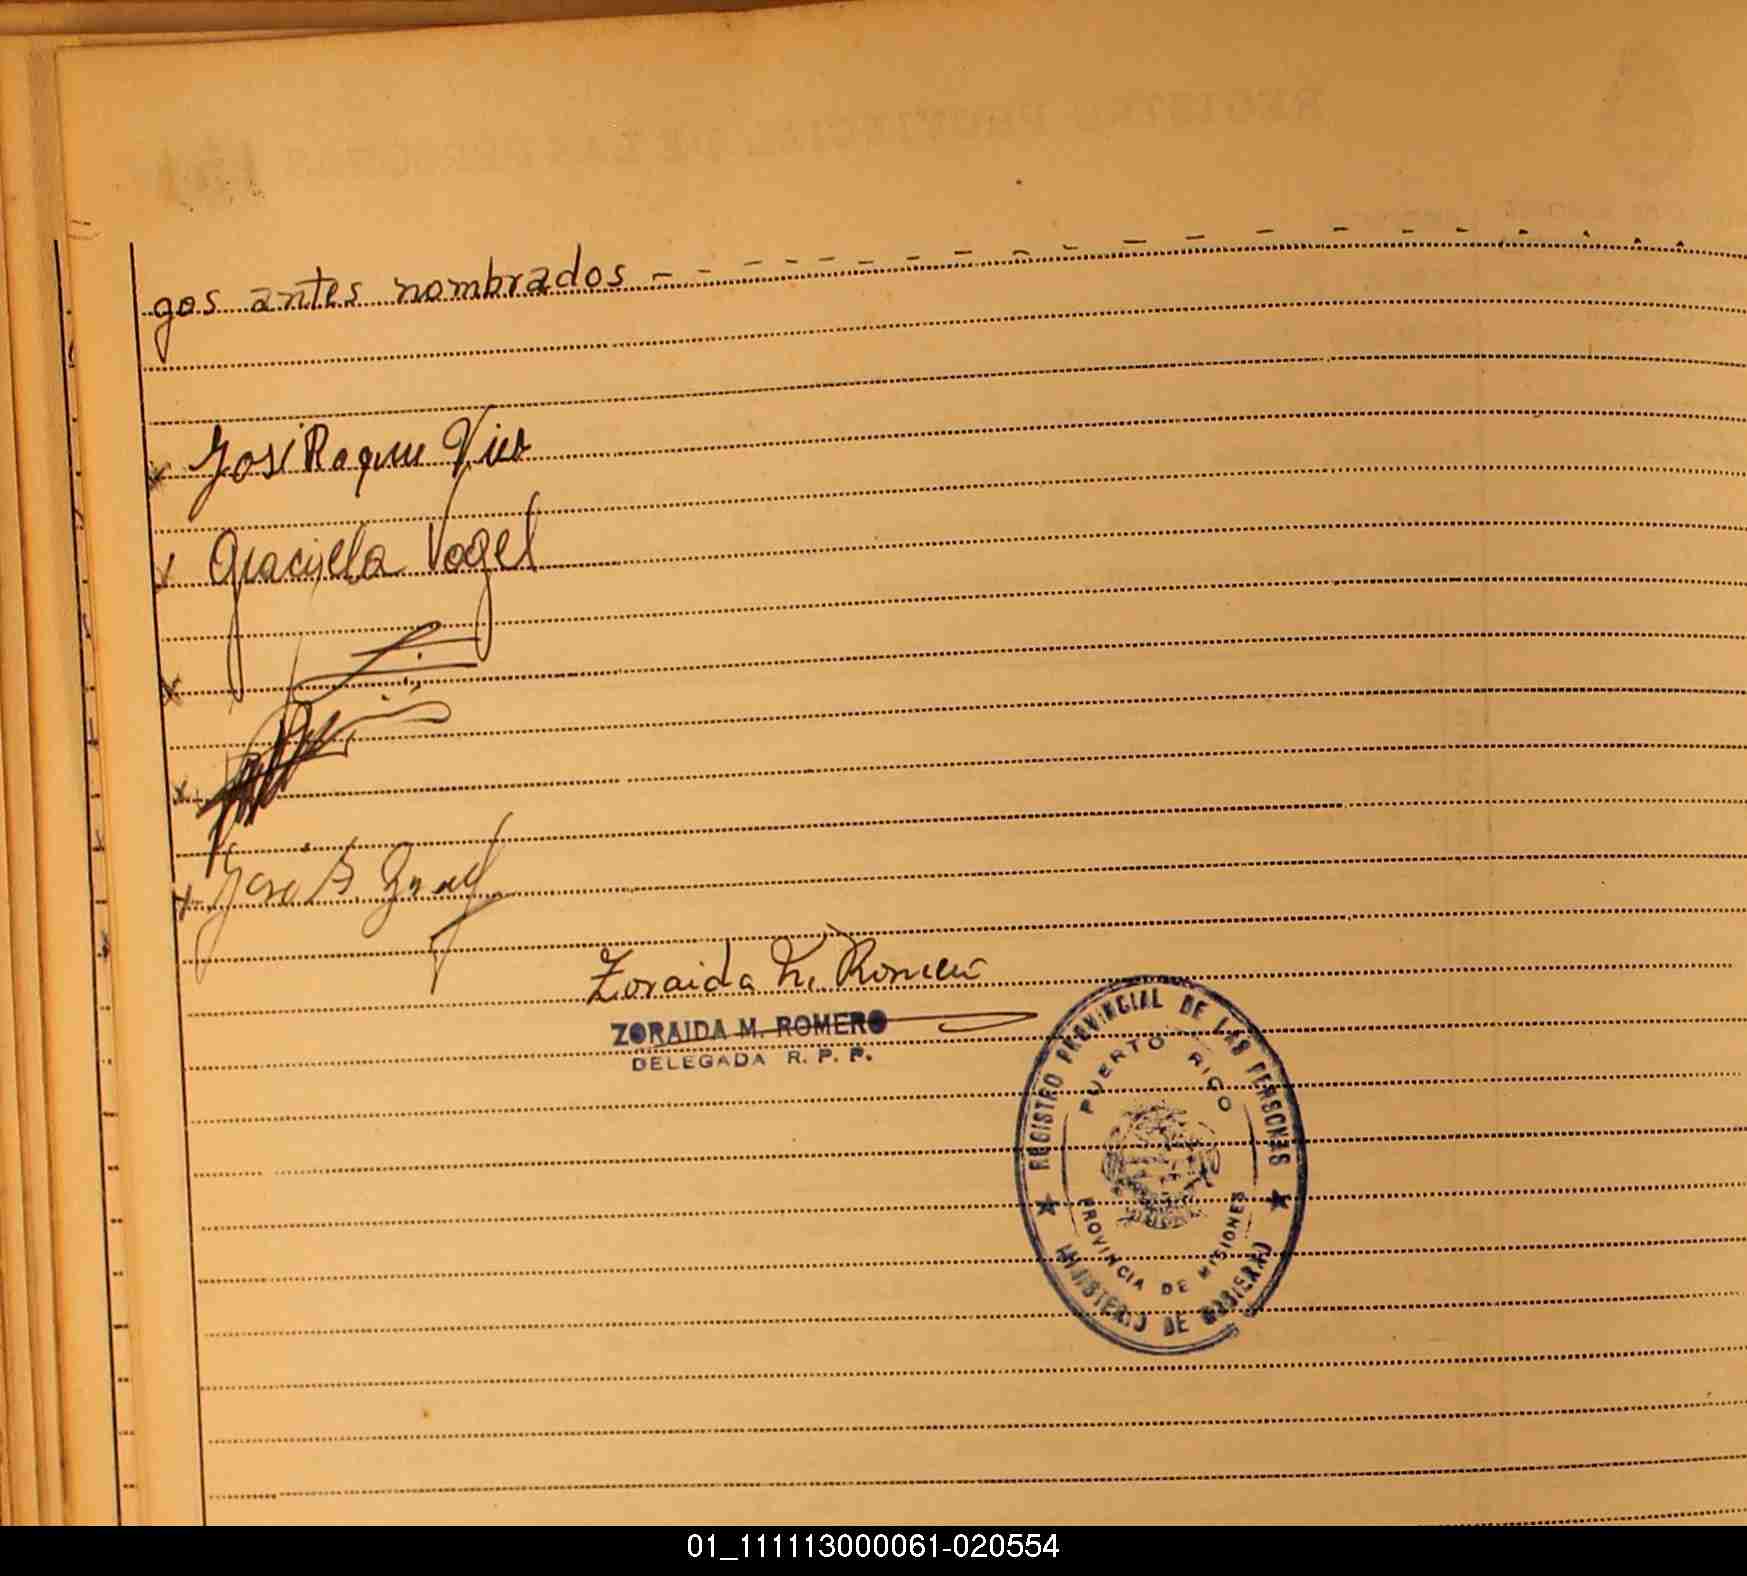 gos antes nombrados - - - - - - - - - - - - - - - - - -
José Roque
Graciela Vogel
José
Zoraida M. Romero
ZORAIDA M. ROMERO
DELEGADA R. P. P.
REGISTRO PROVINCIAL DE LAS PERSONAS
PUERTO RICO
PROVINCIA DE MISIONES
MINISTERIO DE GOBIERNO
01_111113000061-020554